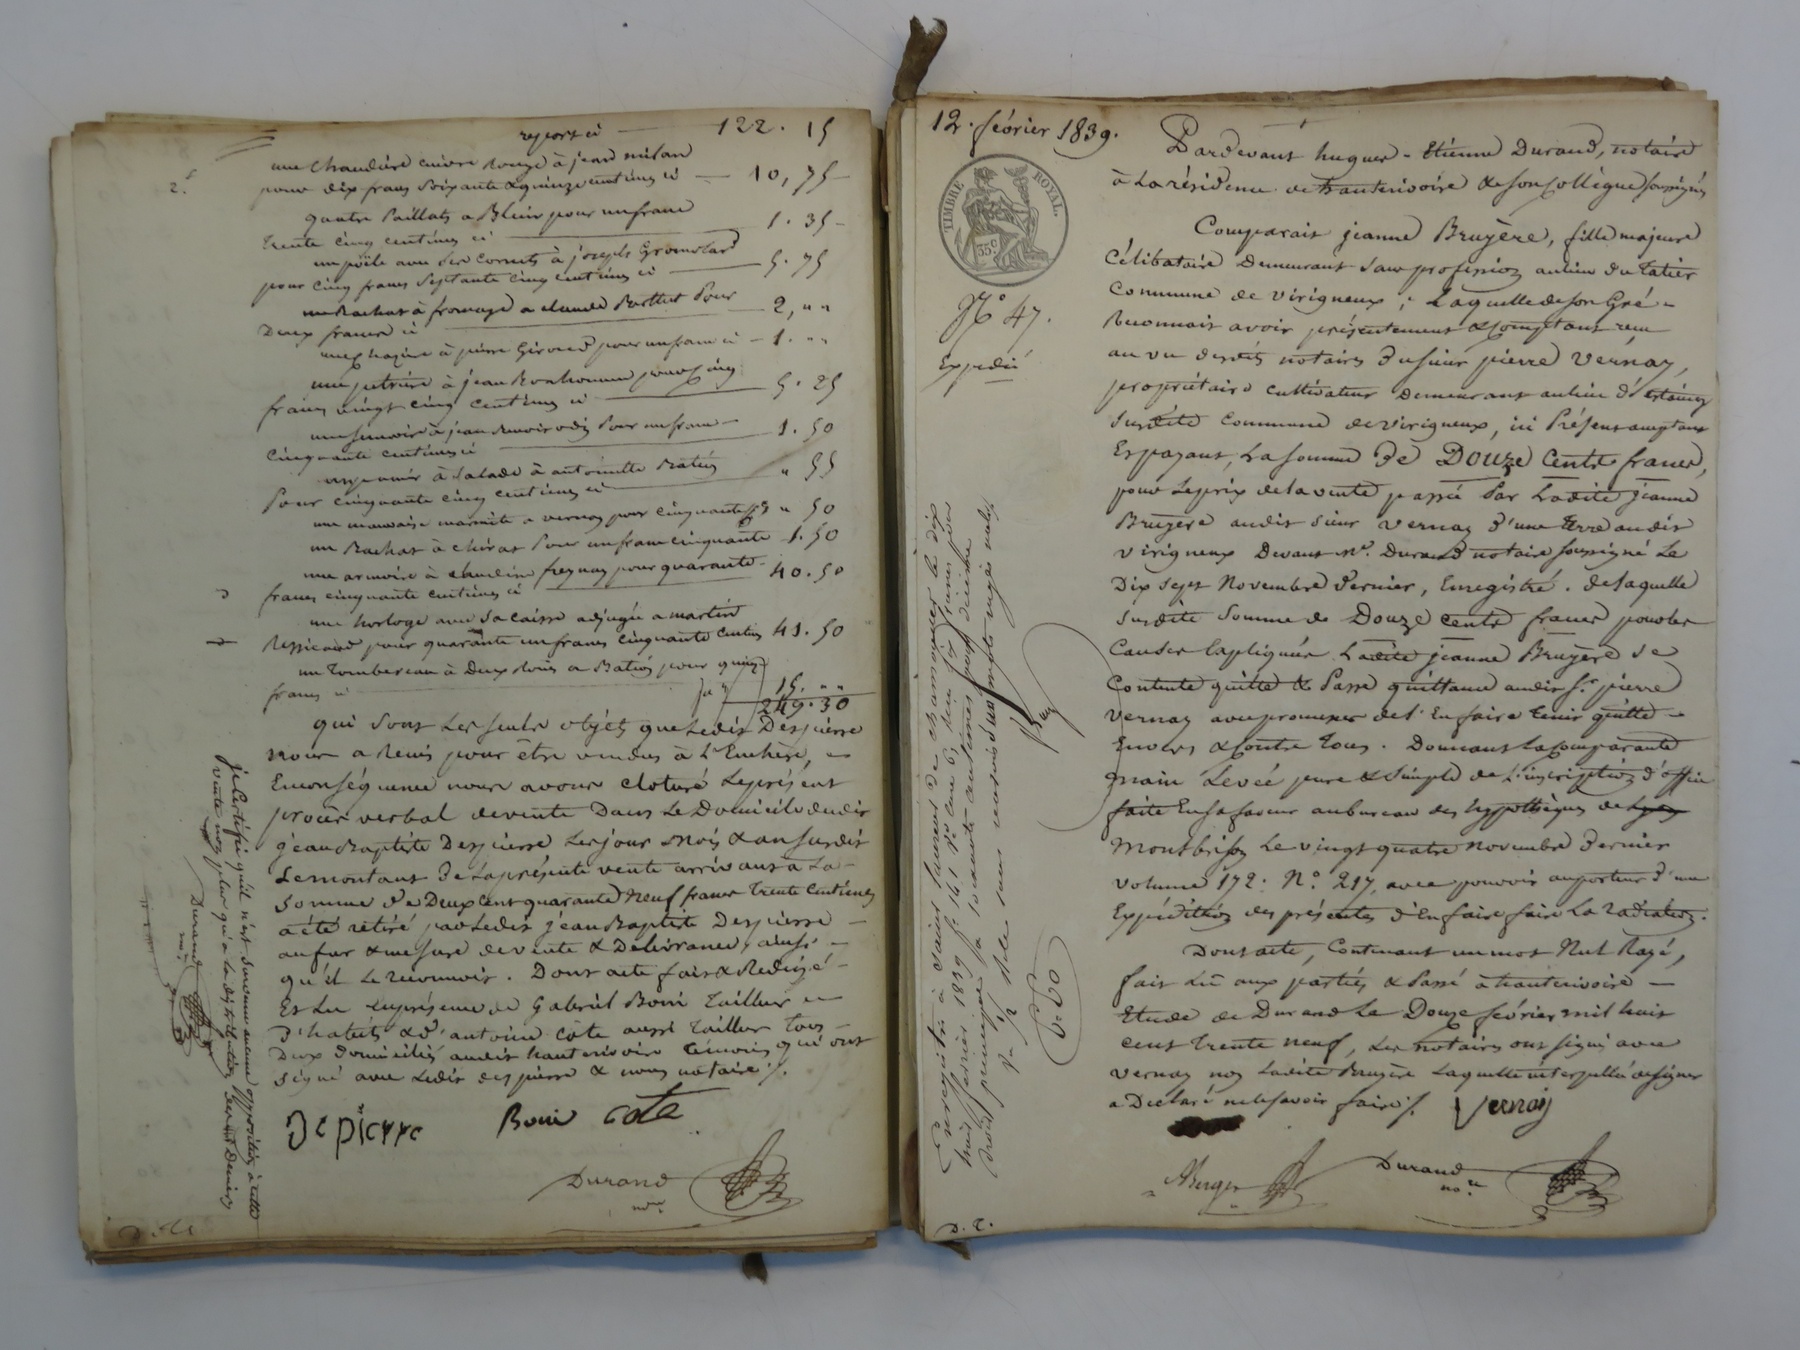 report ci 122. 15
une Chaudière cuivre Rouge à jean milan
pour dix francs Soixante & quinze centimes ci 10, 75
quatre Paillats a Blein pour un franc
trente cinq centimes ci 1. 35
un poële avec Ses Cornets à joseph Gromolard
pour cinq francs Septante cinq centimes ci 5. 75
un Rachat à fromage a claude Pour
Deux francs ci 2, " "
à pierre Giroud pour un franc ci 1. " "
une à jean Bonhomme pour cinq
francs vingt cinq centimes ci 5. 25
à jean Pour un franc
Cinquante centimes ci 1. 50
un panier à Salade à antoinette
Pour cinquante cinq centimes ci " 55
une mauvaise marmite a vernay pour cinquante " 50
un Rachat à chirat Pour un franc cinquante 1. 50
une armoire à claudine freynay pour quarante
francs cinquante centimes ci 40. 50
une horloge avec Sa caisse adjugée a martin
pour quarante un francs cinquante Centimes 41. 50
un Tombereau à Deux Roues a pour quinze
francs ci 15. " "
249. 30
qui Sont Les Seuls objets que Ledit Despierre
nous a Remis pour être vendus à L'Enchère,
En conséquence nous avons cloturé Le présent
procès verbal de vente Dans Le Domicile dudit
jean Baptiste Despierre Les jour mois & an Susdits
Le montant De La présente vente arrivant à La
Somme De Deux Cent quarante Neuf francs Trente Centimes
a été retiré par Ledit jean Baptiste Despierre
au fur & mesure de vente & Délivrance, ainsi
qu'il Le reconnoit. Dont acte fait & Redigé
Et Lu En présence de Gabriel Boni Tailleur
D'habits & d'antoine côte aussi Tailleur Tous
Deux domiciliés audit hauterivoire témoins qui ont
Signé avec Ledit despierre & nous notaire /.
Depierre Boni cote
Durand
je Certifie qu'il n'est Survenu aucune opposition à cette
vente non plus qu'a La distribution Deniers
Durand
12. février 1839.
TIMBRE ROYAL.
35 c
No 47.
Expédié
Pardevant hugues-Etienne Durand, notaire
à La résidence de hauterivoire & son Collègue Soussignés
Comparait jeanne Bruyère, fille majeure
Célibataire Demeurant Sans profession au lieu du Tatier
Commune de virigneux; Laquelle de Son Gré
Reconnait avoir présentement & Comptant reçu
au vu desdits notaires Du Sieur pierre Vernay,
propriétaire cultivateur Demeurant au lieu
Susdite Commune de virigneux, ici Présent acceptant
Et payant, La Somme De Douze Cents francs,
pour Le prix de la vente passée Par Ladite jeanne
Bruyère audit Sieur Vernay D'une Terre audit
virigneux Devant Me. Durand notaire Soussigné Le
Dix Sept Novembre Dernier, Enregistré. de laquelle
Susdite Somme de Douze cents francs pour les
Causes Expliquées Ladite jeanne Bruyère Se
Contente quitte & Passe quittance audit Sr. pierre
Vernay avec promesse de L'En faire tenir quitte
Envers & Contre Tous. Donnant La comparante
main Levée pure & Simple de L'inscription d'office
faite En Sa faveur au bureau des hypothèques de
Montbrison Le vingt quatre Novembre Dernier
volume 172. No. 217, avec pouvoir au porteur D'une
Expédition des présentes D'En faire faire La radiation.
Dont acte, Contenant un mot Nul Rayé,
fait Lu aux parties & Passé à hauterivoire
Etude de Durand Le Douze février mil huit
cent trente neuf, Les notaires ont Signé avec
Vernay non Ladite Bruyère Laquelle interpellée de Signer
a Déclaré ne le Savoir faire /. Vernay
Berger Durand
Enregistré à Saint Laurent de chamousset le dix
huit février 1839
Reçu
6.60
D. 2.